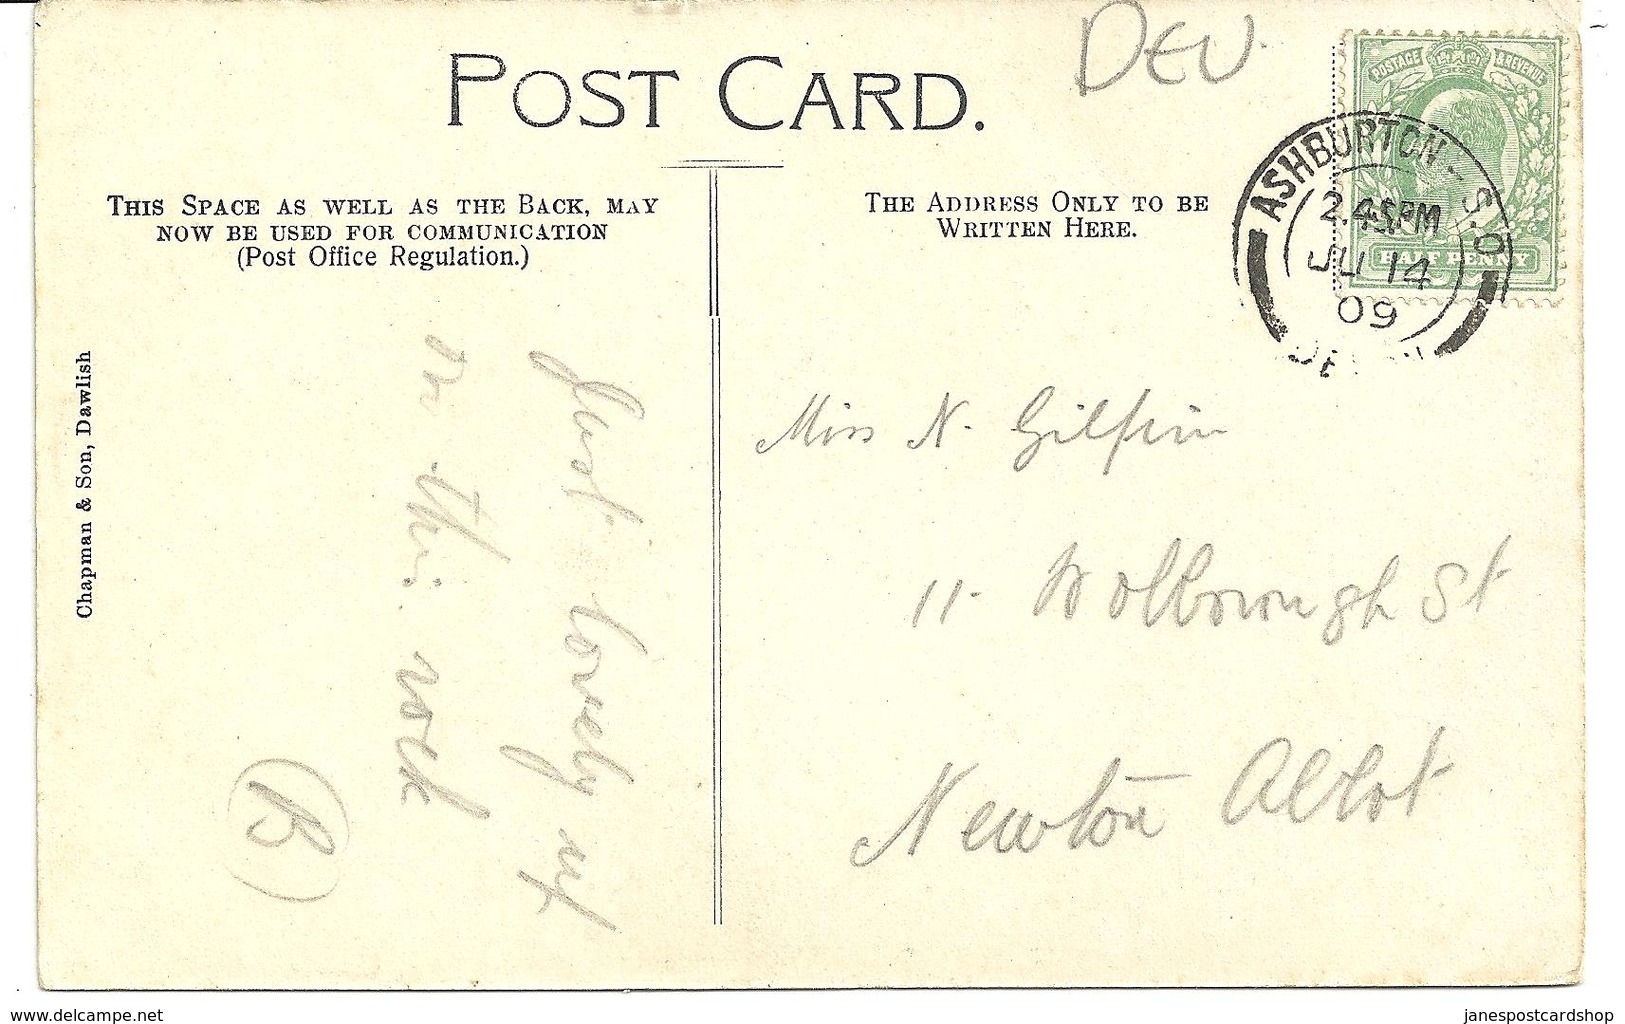 DEV.
POST CARD.
POSTAGE & REVENUE
HALF PENNY
ASHBURTON - S.O
2.45PM
JU 14
09
THIS SPACE AS WELL AS THE BACK, MAY
NOW BE USED FOR COMMUNICATION
(Post Office Regulation.)
THE ADDRESS ONLY TO BE
WRITTEN HERE.
Chapman & Son, Dawlish
Just lovely up
on this rock
B
Miss N. Gilpin
11. Wolborough St
Newton Abbot
www.delcampe.net
janespostcardshop